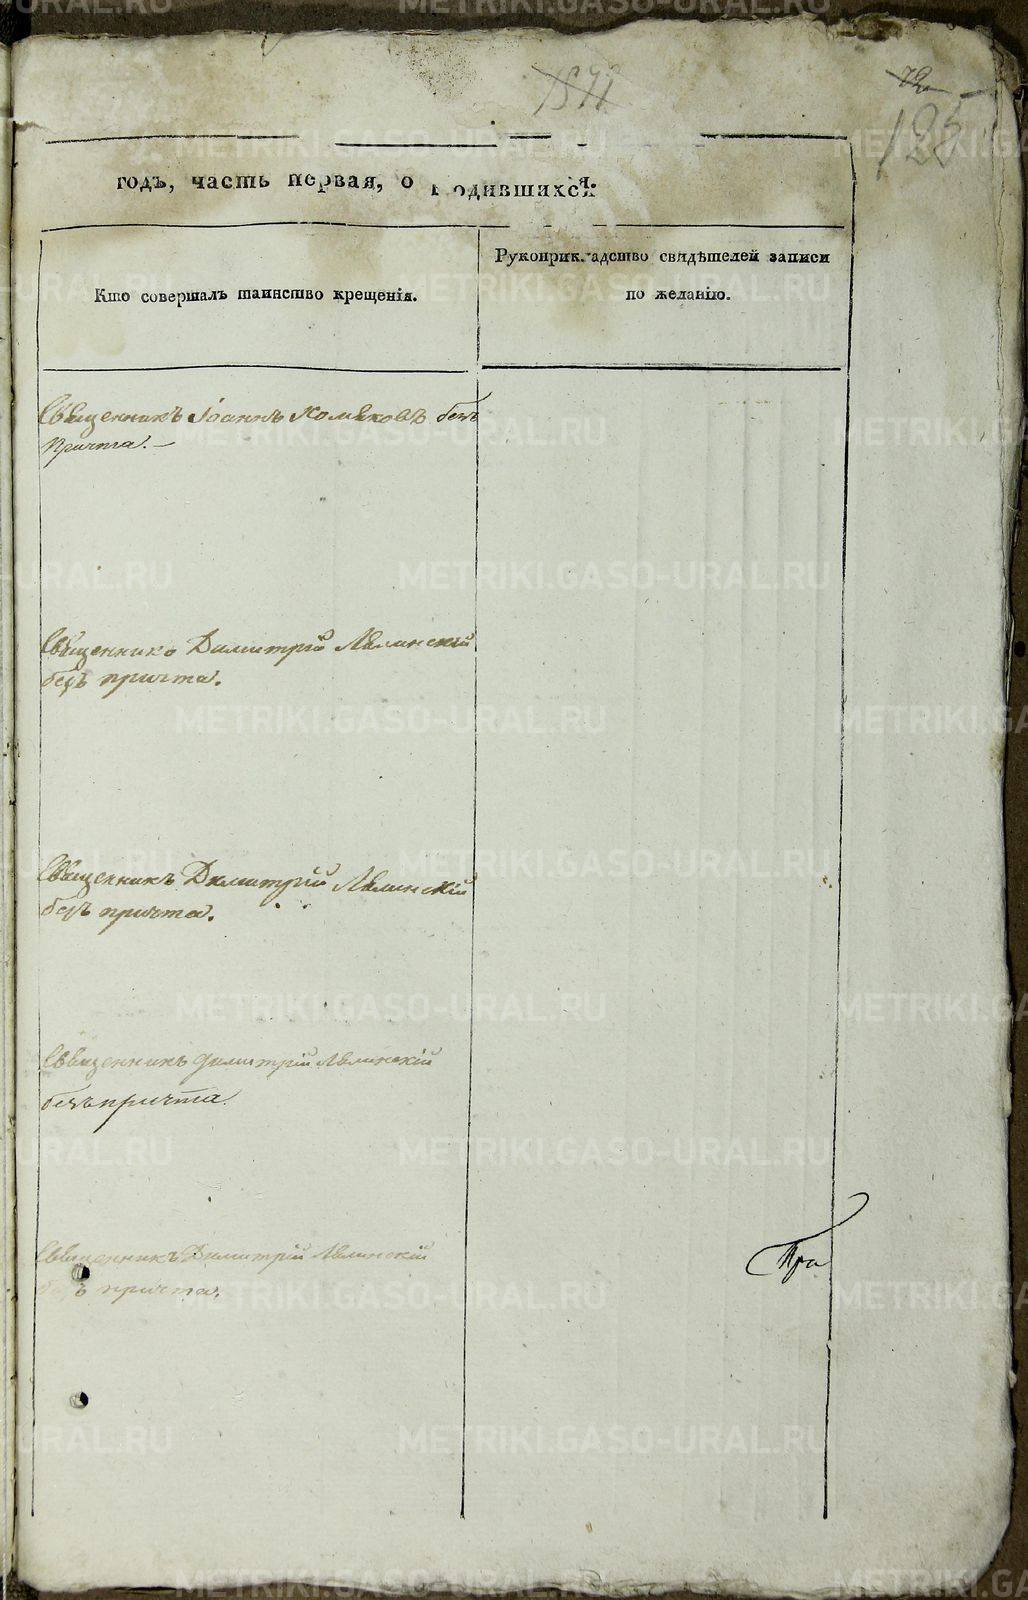 125
годъ, часть первая, о родившихся.
Кто совершалъ таинство крещенія.
Рукоприкладство свидѣтелей записи
по желанію.
Священникъ Іоаннъ Хомяковъ безъ
причта.
Священникъ Димитрій Лялинскій
безъ причта.
Священникъ Димитрій Лялинскій
безъ причта.
Священникъ Димитрій Лялинскій
безъ причта.
Священникъ Димитрій Лялинскій
безъ причта.
METRIKI.GASO-URAL.RU